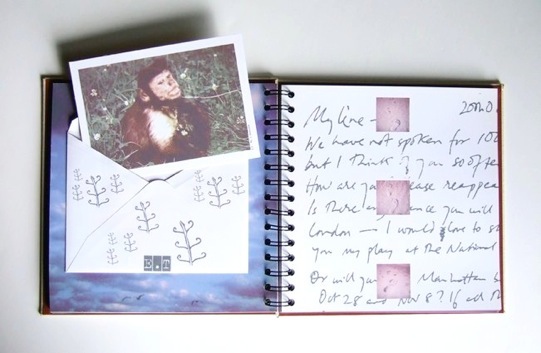 My love -
We have not spoken for 100
but I think of you so often
How are you ease reappea
Is there an ance you will
London — I would love to s
you my play at the National
Or will you Manhattan b
Oct 28 and Nov 8? If